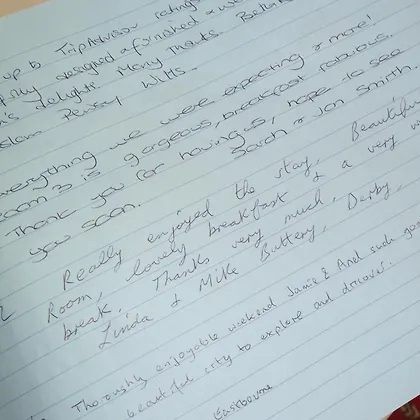 up to TripAdvisor ratings
designed & furnished &
delight. Many Thanks.
Pewsey Wilts.
Everything we were expecting & more!
Room 3 is gorgeous, breakfast fabulous.
Thank you for having us, hope to see
you soon. Sarah & Jon Smith.
Really enjoyed the stay, Beautiful
Room, lovely breakfast & a very
break. Thanks very much,
Linda & Mike Buttery, Derby,
Thoroughly enjoyable weekend Jamie & And such
beautiful city to explore and discover.
Eastbourne